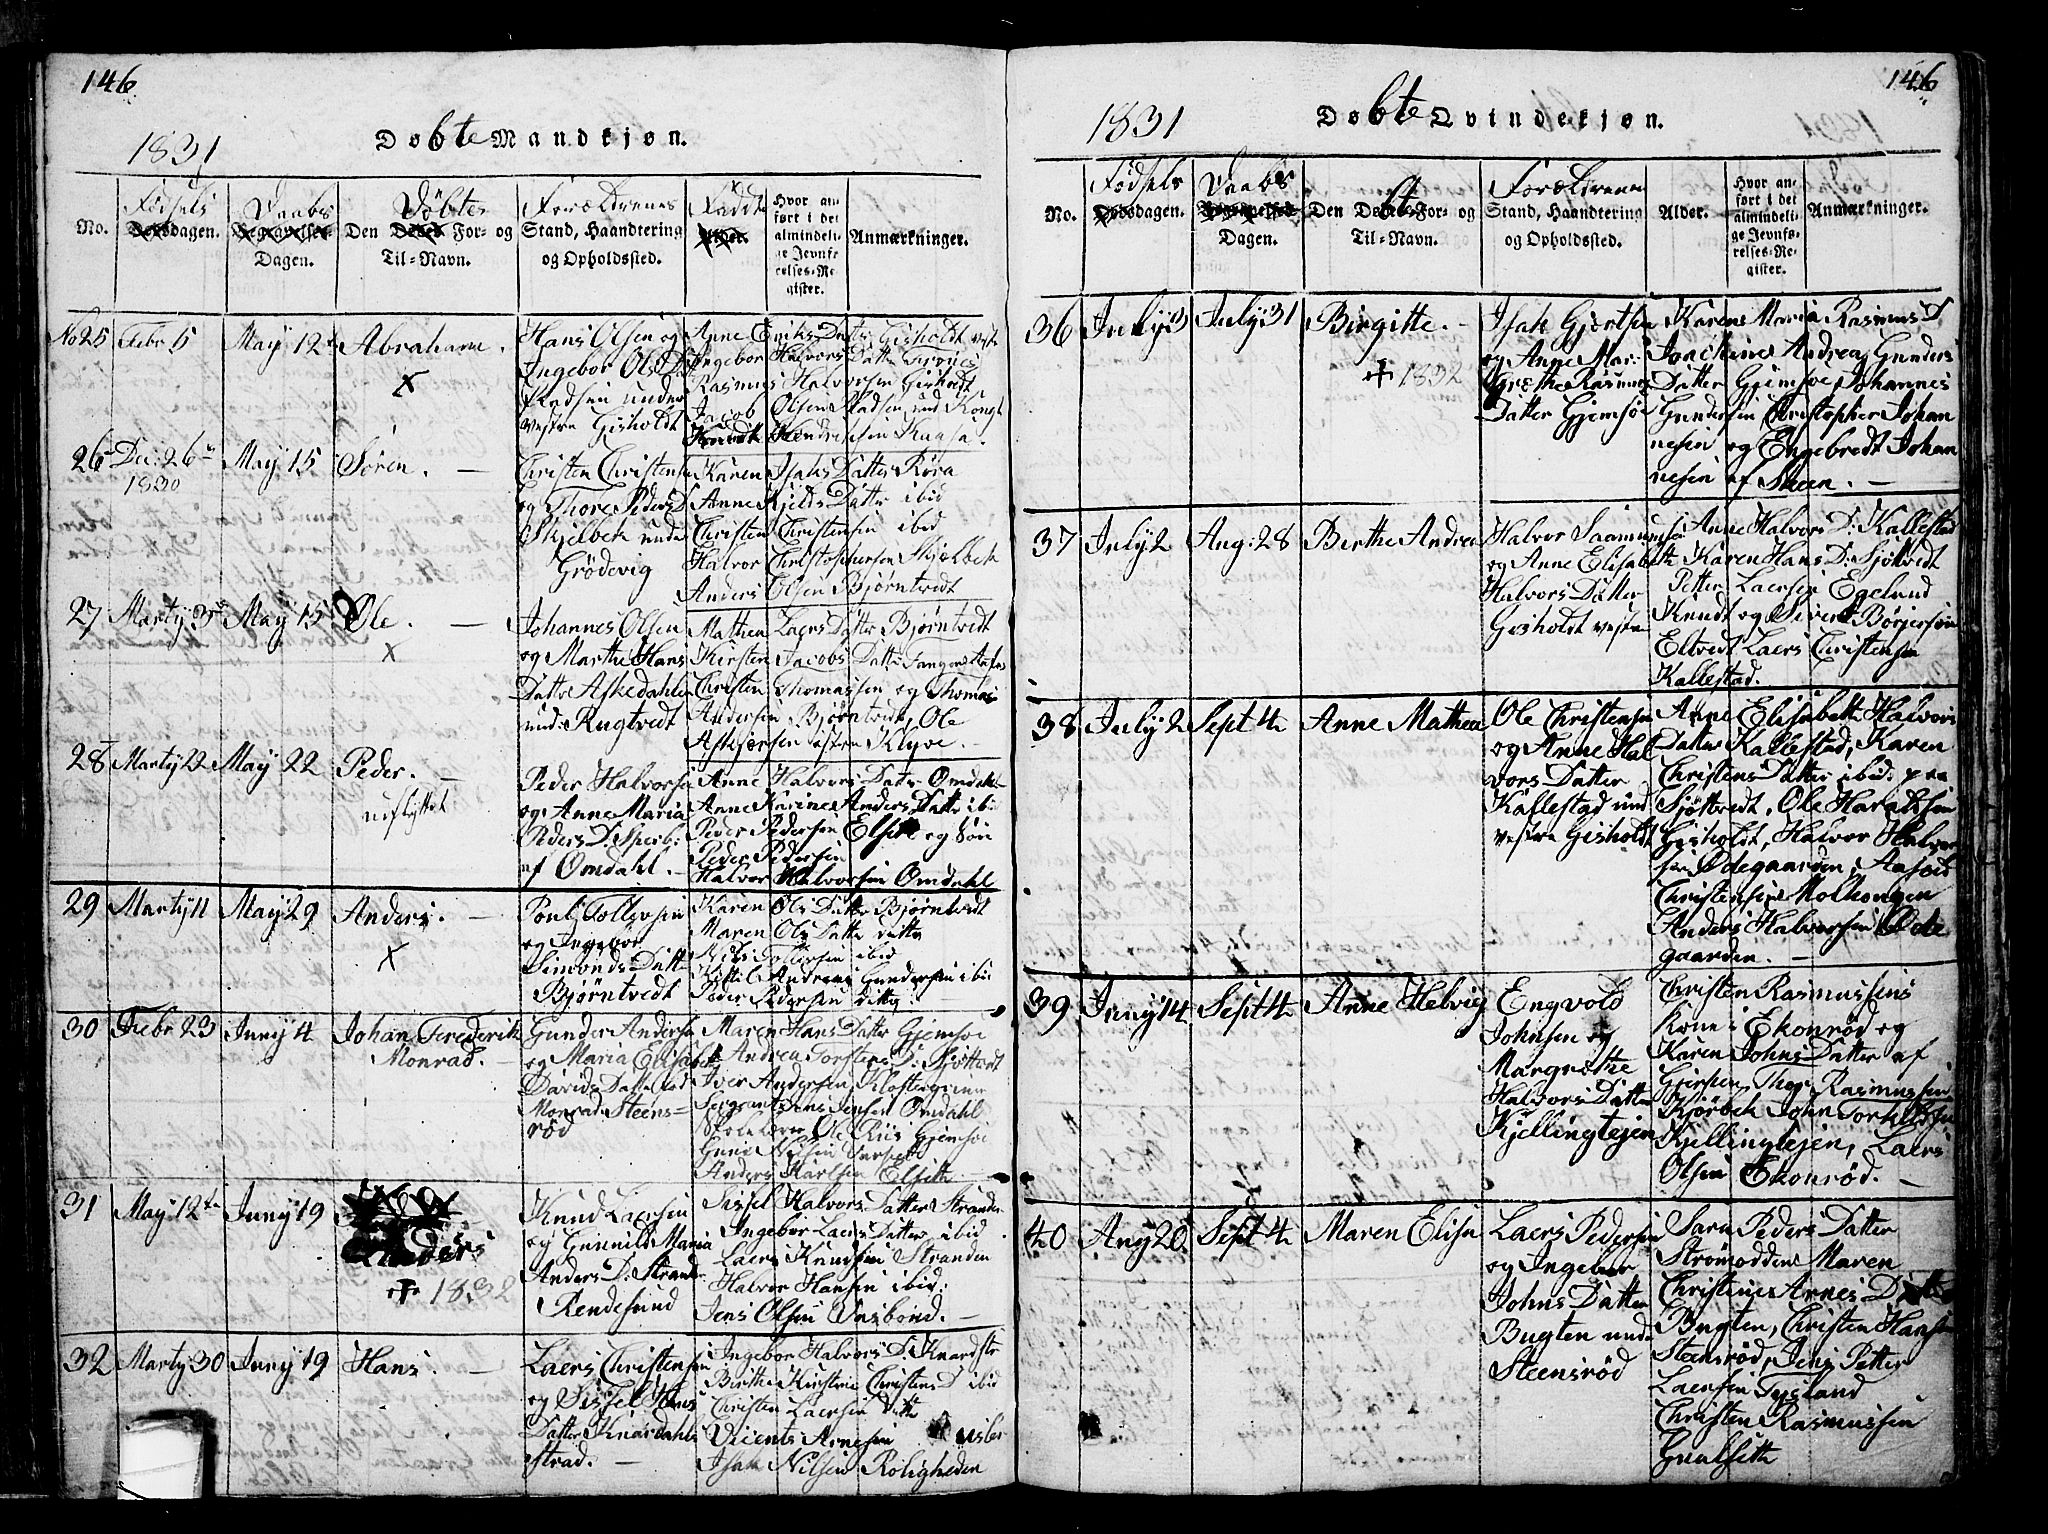 146
1831
Døbte Mandkjøn.
No.
Fødsels
Dødsdagen.
Daabs
Begravelses-
Dagen.
Døbtes
Den Dødes For- og
Til-Navn.
Forældrenes
Stand, Haandtering
og Opholdssted.
Fadd
Alder.
Hvor an-
ført i det
almindeli-
ge Jevnfø-
relses-Re-
gister.
Anmærkninger.
No 25 Febr 5 May 12te Abraham. X
Hans Olsen og
Ingebor Ols Dat
Pladsen under
vestre Gisholdt
Anne Eriks Datter Gisholdt vestre
Ingebor Halvors Datter
Rasmus Halvorsen Gisholdt
Jacob Olsen Pladsen und
Hendrichsen
26 Dec: 26 1830 May 15 Søren. —
Christen Christensen
og Thore Peders D
Skjelbek unde
Grødevig
Karen Isaks Datter Røra
Anne Kjelds Datter ibid
Christen Christensen ibid
Halvor Christophersen Skjelbek
Anders Olsen Bjørntvedt
27 Marty 3 May 15 Ole. — X
Johannes Olsen
og Marthe Hans
Datter Askedahlen
und: Rugtvedt
Mathea Laers Datter Bjørntvedt
Kirsten Jacobs Datter Tangen
Christen Thomassen og Thomas
Andersen Bjørntvedt, Ole
vestre Klyve. —
28 Marty 22 May 22 Peder. —
udflyttet
Peder Halvorsen
og Anne Maria
Peders D.
af Omdahl. —
Anne Halvors Datter Omdahl
Anne Karine Anders Datter ibid
Peder Pedersen Elset og Søn
Peder Pedersen
Halvor Halvorsen Omdahl
29 Marty 11 May 29 Anders. — X
Pouly Tollevsen
og Ingebor
Simonds Datt
Bjørntvedt
Karen Ols Datter Bjørntvedt
Maren Ols Datter ditto
Nils Tollefsen ibid
Andreas Gundersen ibid
Peder Pedersen Ditto
30 Febr 23 Juny 4 Johan Frederik
Monrad. —
Gunder Andersen
og Maria Elisabeth
Davids Datter
Monrad Steens=
rød
Maren Hans Datter Gjemsøe
Andrea Torstens D:
Iver Andersen Klostergrund
Sergeant Jens Jensen Omdahl
Skolelærer Ole Riis Gjemsøe
Nilsen
Anders Karlsen Elseth
31 May 12te Juny 19 Anders
+ 1832
Knud Laersen
og Gunnild Maria
Anders D: Stranden
Rendesund
Sissel Halvors Datter Stranden
Ingebor Laers Datter ibid
Laers Knudsen Stranden
Halvor Hansen ibid:
Jens Olsen —
32 Marty 30 Juny 19 Hans. —
Laers Christensen
og Sissel Hans
Datter Knardahls
strad. —
Ingebor Halvors D. Knardstr
Birthe Kirstine Christens D ibid
Christen Laersen ditto
Vicents Arnesen
Isak Nilsen Roligheden
146
1831
Døbte Qvindekjøn.
No.
Fødsels
Dødsdagen.
Daabs
Dagen.
Den Døbtes For- og
Til-Navn.
Forældrenes
Stand, Haandtering
og Opholdssted.
Alder.
Hvor an-
ført i det
almindeli-
ge Jevnfø-
relses-Re-
gister.
Anmærkninger.
36 July 3 July 31 Birgitte. —
+ 1832
Isak Gjertsen
og Anne Mar:
Grethe Rasmus
Datter Gjemsøe
Karen Maria Rasmus D
Joachine Andrea Gunders
Datter Gjemsøe, Johannes
Gundersen Christopher Johan
nesen og Engebredt Johan
nesen af Skeen. —
37 July 2 Aug: 28 Birthe Andrea
Halvor Saamundsen
og Anne Elisabeth
Halvors Datter
Gisholdt vestre
Anne Halvors D: Kallestad
Karen Hans D: Sjøtvedt
Petter Laersen Egelund
Knudt og Sivert Børjersen
Eltvedt Laers Christensen
Kallestad.
38 July 2 Sept 4 Anne Mathea
Ole Christensen
og Anne Hal
vors Datter
Kallestad und
vestre Gisholdt
Anne Elisabeth Halvors
Datter Kallestad, Karen
Christens Datter ibid: paa
Sjøtvedt, Ole Haraldsen
Gisholdt, Halvor Halvor
sen Ødegaarden,
Christensen
Anders Halvorsen Øde
gaarden. —
39 Juny 14 Sept 4 Anne Helvig
Engvold
Johnsen og
Margrethe
Halvors Datter
Kjellinglejen
Christen Rasmussens
Kone: Ekonrød og
Karen Johns Datter af
Gjerpen, Thor Rasmussen
Kjørbek John Torkildsen
Kjellinglejen, Laers
Olsen Ekonrød. —
40 Aug 20 Sept 4 Maren Elisa
Laers Pedersen
og Ingebor
Johns Datter
Bugten und
Steensrød
Sara Peders Datter
Strømodden, Maren
Christine Arnes D
Bugten, Christen Hansen
Steensrød, Jens Petter
Laersen Tysland
Christen Rasmussen
Gualseth